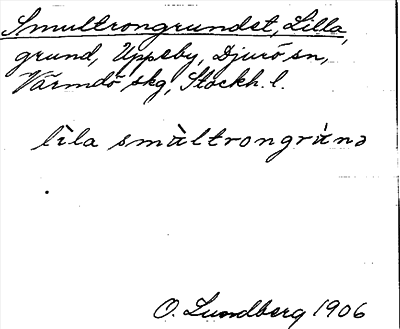 Smultrongrundet, Lilla,
grund, Uppeby, Djurö sn,
Värmdö skg, Stockh. l.
lìla smùltrongrùnə
O. Lundberg 1906